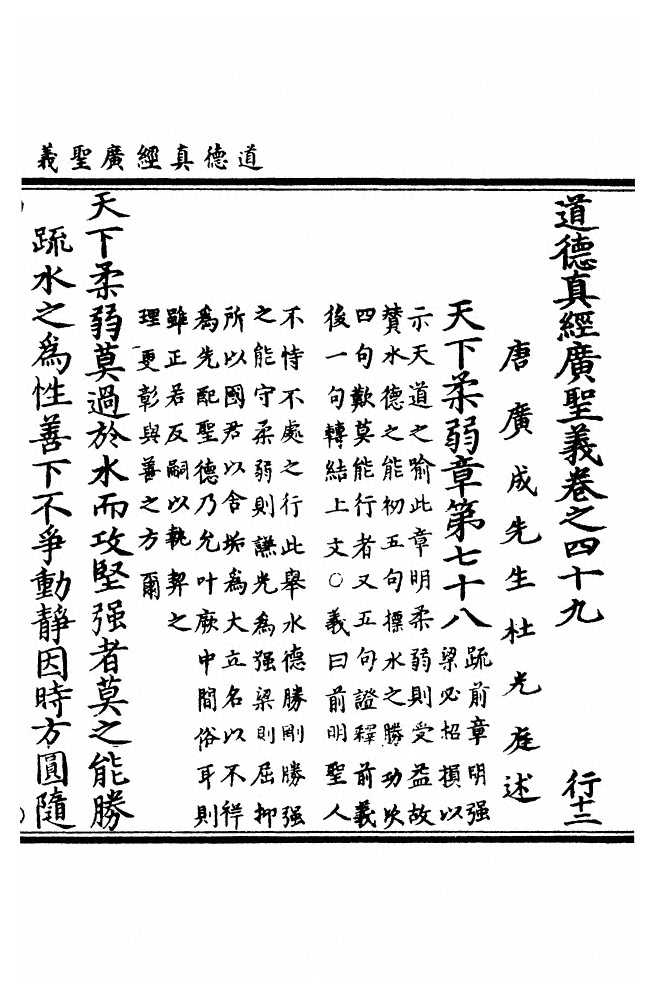 道德真經廣聖義
道德真經廣聖義卷之四十九 行十二
唐廣成先生杜光庭述
天下柔弱章第七十八
疏前章明强
梁必招損以
示天道之喻此章明柔弱則受益故
賛水德之能初五句摽水之勝功次
四句歎莫能行者又五句證釋前義
後一句轉結上文○義曰前明聖人
不恃不處之行此舉水德勝剛勝强
之能守柔弱則謙光為强梁則屈抑
所以國君以含垢為大立名以不祥
為先配聖德乃允叶厥中間俗耳則
雖正若反嗣以執契之
理更彰與善之方爾
天下柔弱莫過於水而攻堅强者莫之能勝
疏水之為性善下不爭動靜因時方圓隨